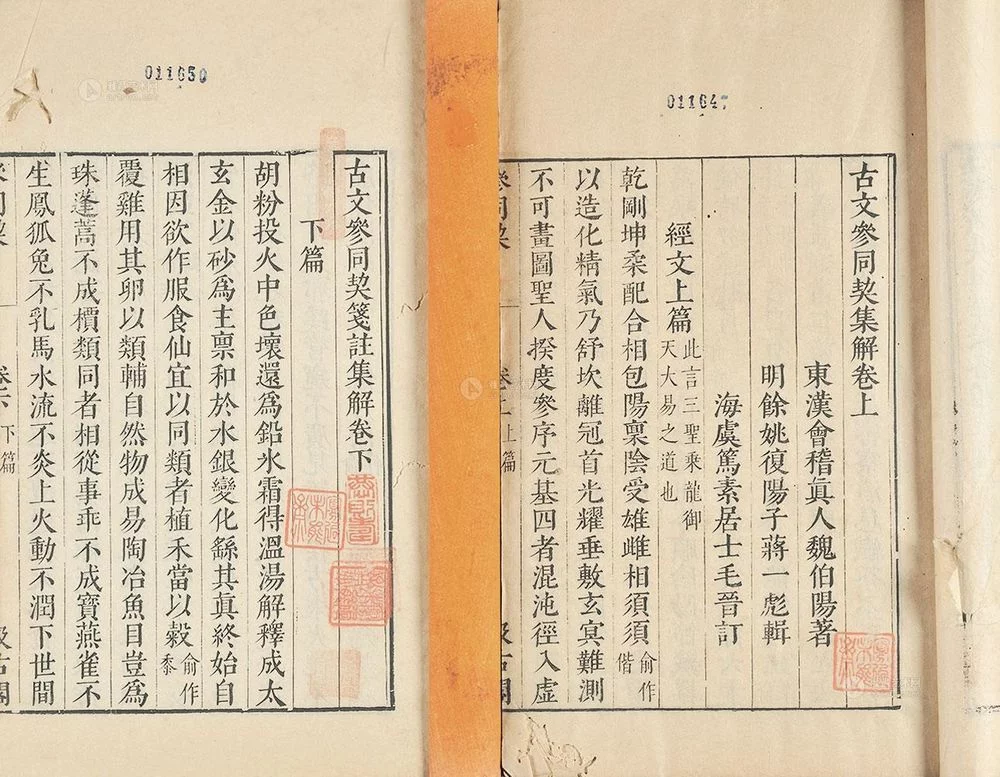 011647
古文參同契集解卷上
東漢會稽眞人魏伯陽著
明餘姚復陽子蔣一彪輯
海虞篤素居士毛晉訂
經文上篇 此言三聖乘龍御天大易之道也
乾剛坤柔配合相包陽稟陰受雄雌相須須俞作偕
以造化精氣乃舒坎離冠首光耀垂敷玄冥難測
不可畫圖聖人揆度參序元基四者混沌徑入虛
上篇
011650
古文參同契箋註集解卷下
下篇
胡粉投火中色壞還爲鉛氷霜得溫湯解釋成太
玄金以砂爲主禀和於水銀變化繇其眞終始自
相因欲作服食仙宜以同類者植禾當以穀俞作黍
覆雞用其卵以類輔自然物成易陶冶魚目豈爲
珠蓬蒿不成檟類同者相從事乖不成寶燕雀不
生鳳狐兔不乳馬水流不炎上火動不潤下世間
下篇